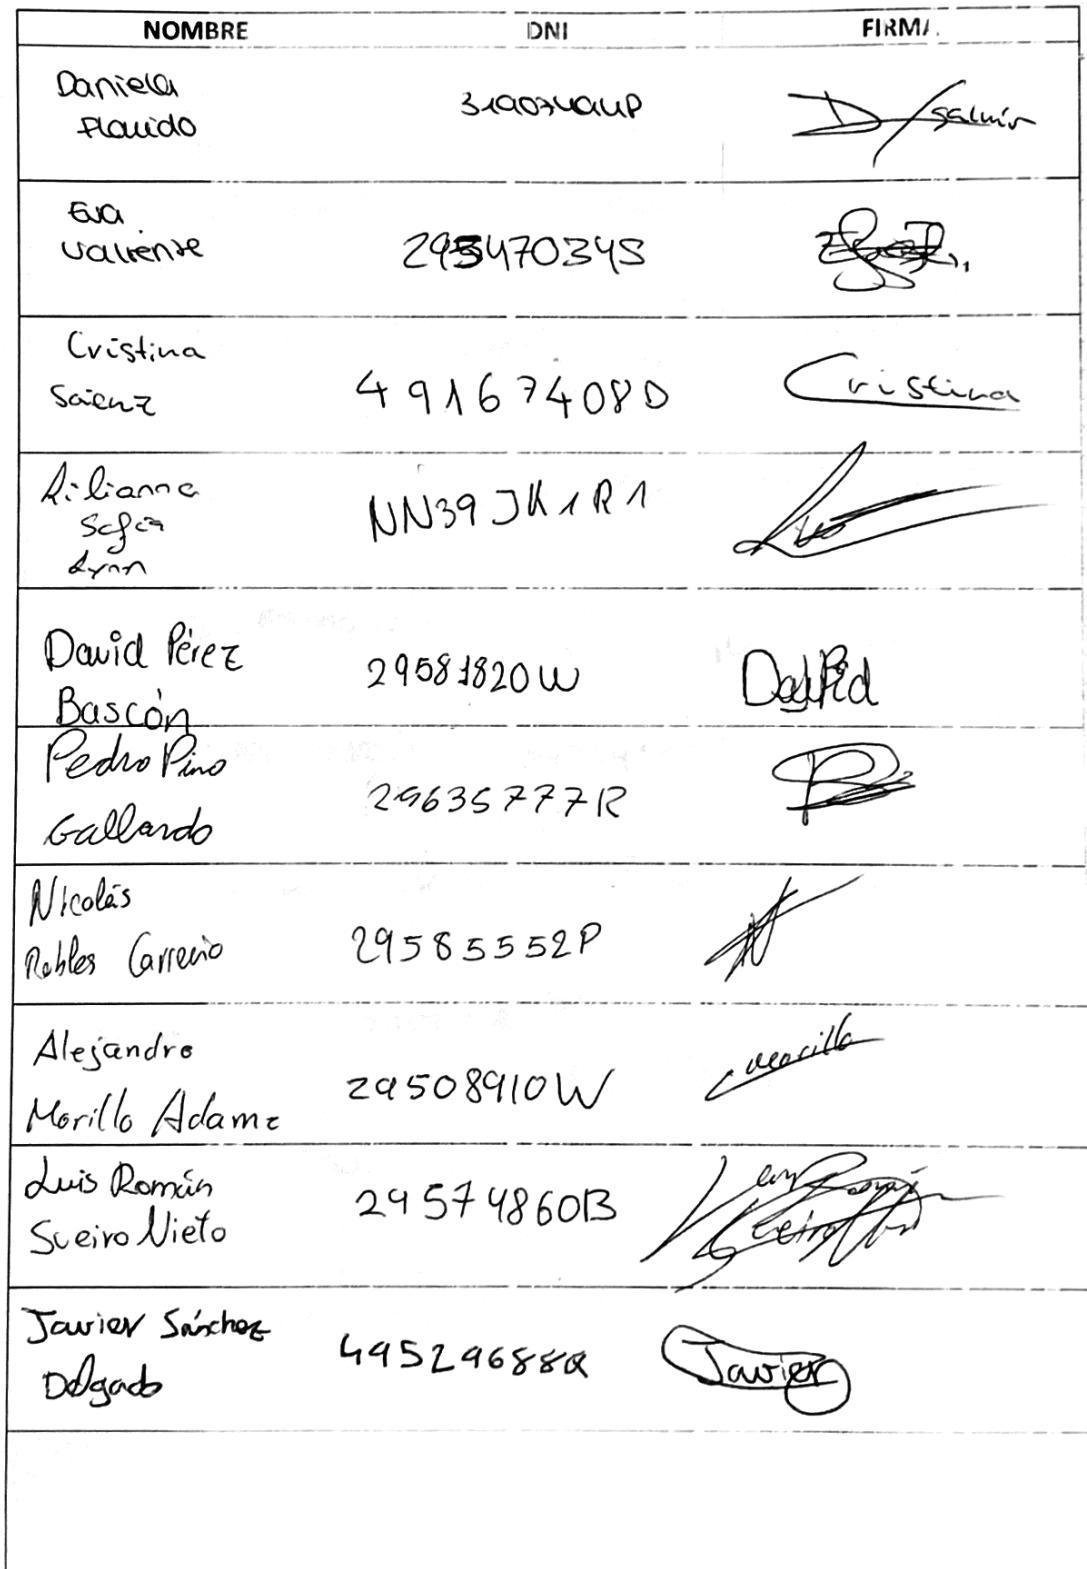 NOMBRE DNI FIRMA
Daniela
Plauido 31907494P
Eva
Valiente 29547034S
Cristina
Saenz 49167408D Cristina
Lilianna
Sofia
Lynn NN39JK1R1
David Pérez
Bascón 29581820W David
Pedro Pino
Gallardo 29635777R
Nicolás
Robles Carreño 29585552P
Alejandro
Morillo Adame 29508910W Morillo
Luis Román
Sueiro Nieto 29574860B
Javier Sánchez
Delgado 49529688Q Javier